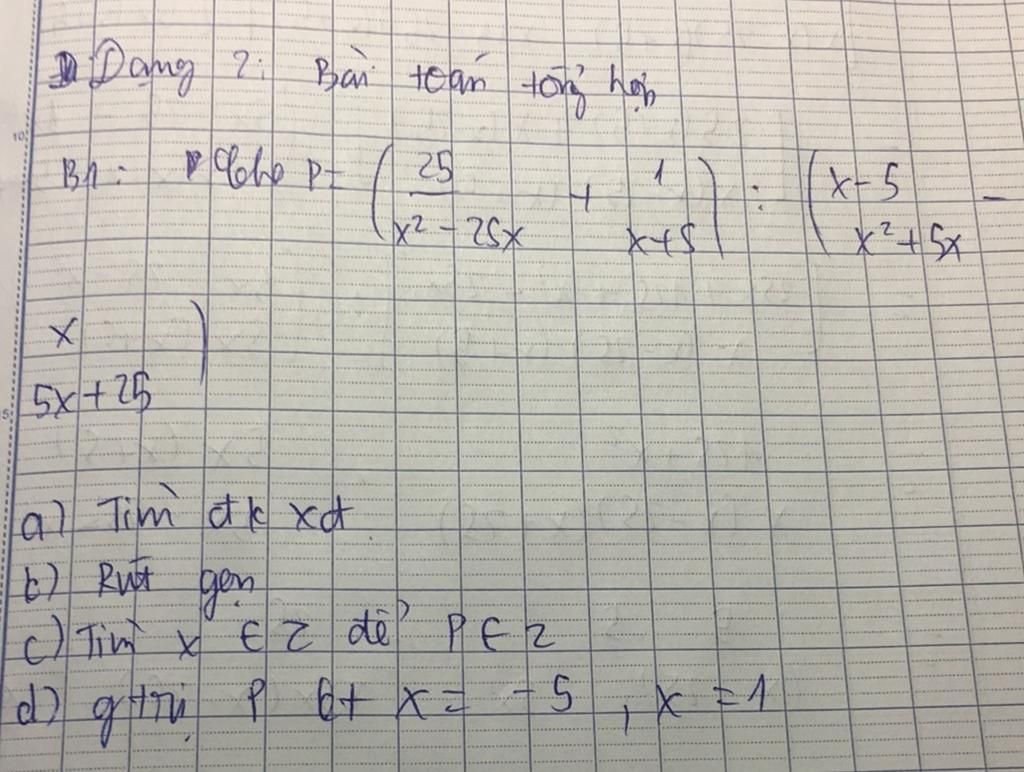 Dạng 2: Bài toán tổng hợp
B1: Cho P = (25/(x² - 25x) + 1/(x+5)) : ((x-5)/(x²+5x) -
x/(5x+25))
a) Tìm đk xđ
b) Rút gọn
c) Tìm x ∈ Z để P ∈ Z
d) gtrị P bt x = -5, x = 1